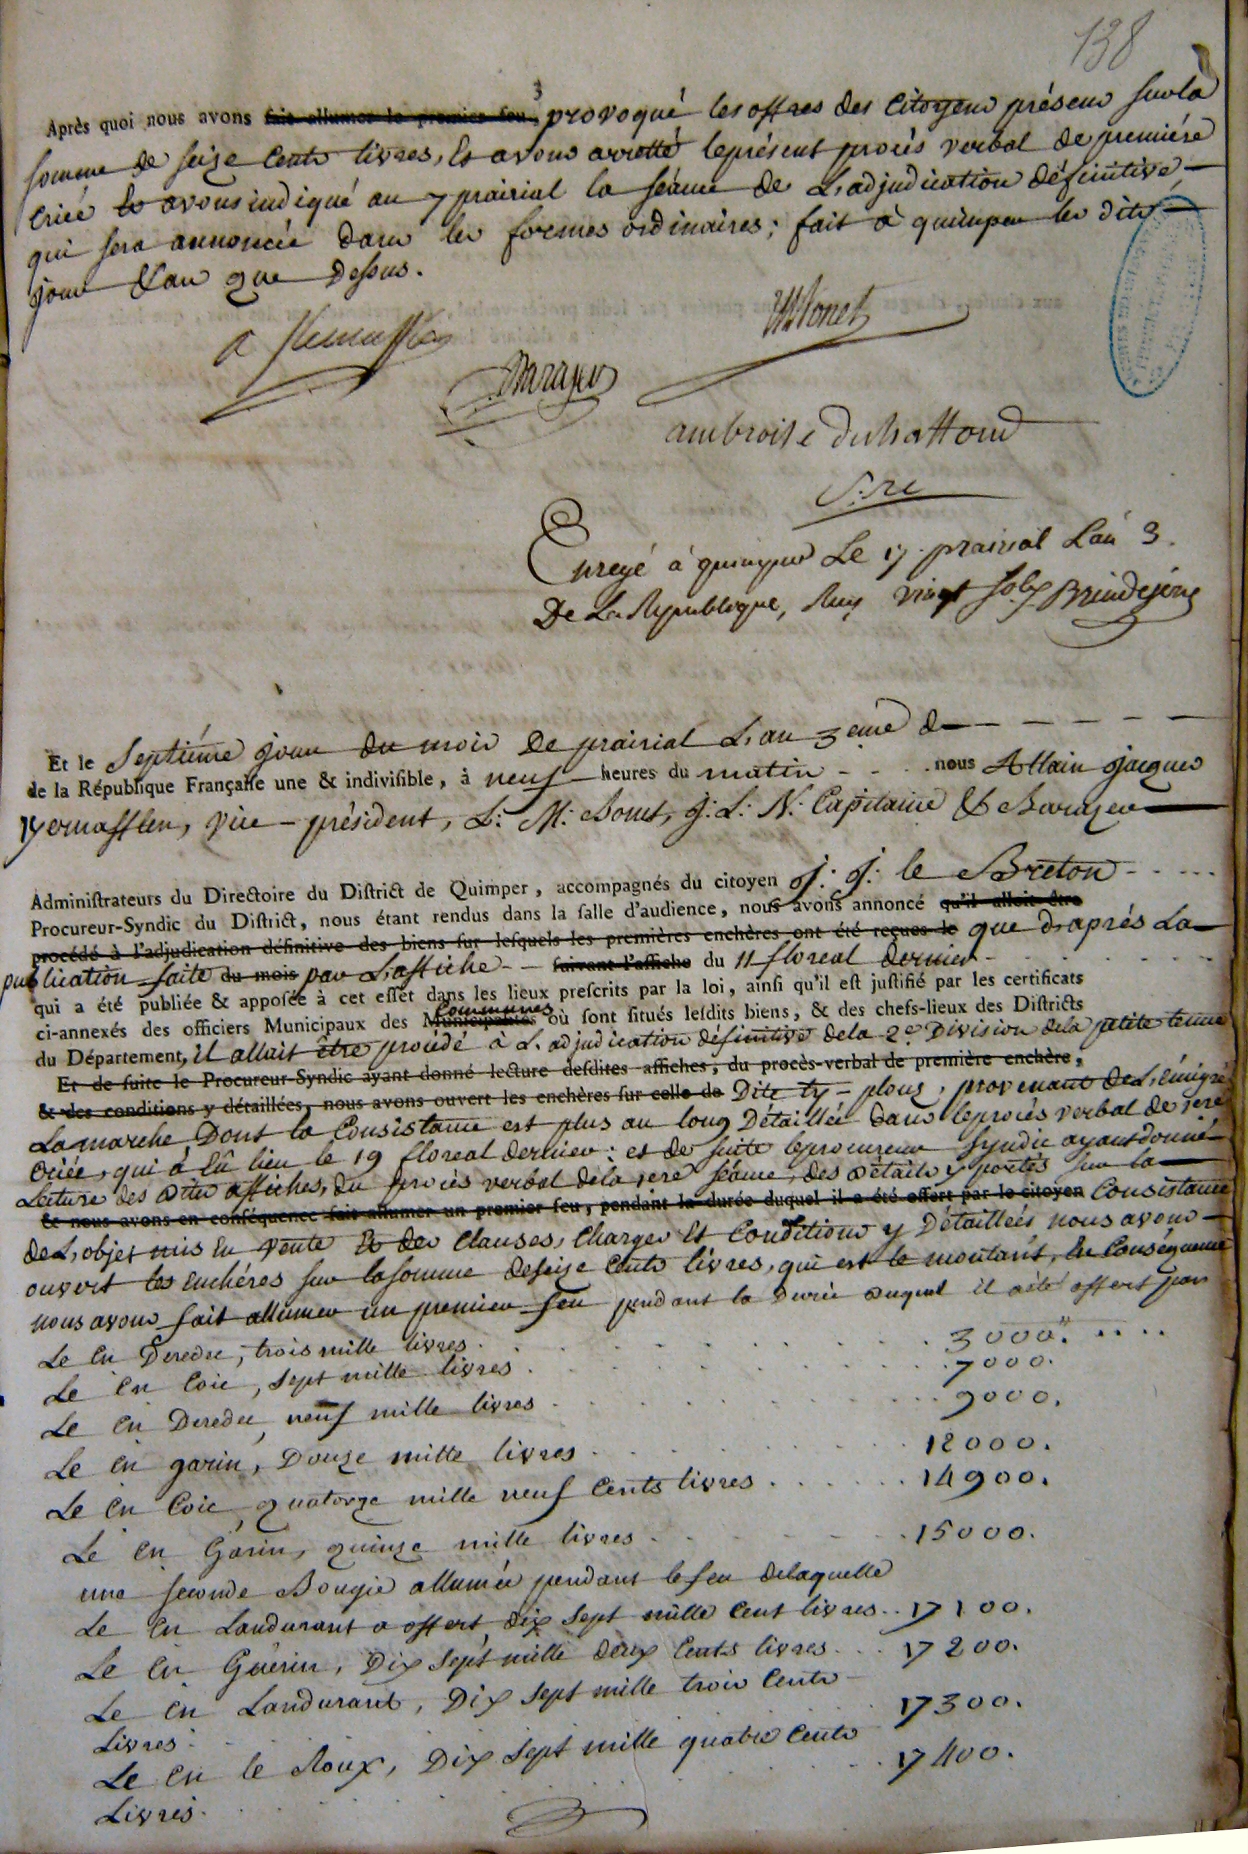 138
Après quoi nous avons fait allumer le premier feu, provoqué les offres des Citoyens présens sur la
somme de seize Cents livres, Et avons arretté le présent procès verbal de premiére
criée Et avons indiqué au 7 prairial la séance de L'adjudication définitive,
qui sera annoncée dans les formes ordinaires ; fait à quimper les dits
jour & an que Dessus.
ambroise
Enregé à quimper Le 17 prairial L'an 3.
De La Republique, Reçu vingt sols
Et le Septiéme jour du mois De prairial L'an 3eme d
de la République Française une & indivisible, à neuf heures du matin nous Allain jacques
Kermafflen, vice-président, L: M: Bonet, J: L: N: Capitaine & Barazer
Administrateurs du Directoire du District de Quimper, accompagnés du citoyen J: J: le Breton
Procureur-Syndic du District, nous étant rendus dans la salle d'audience, nous avons annoncé qu'il alloit être
procédé à l'adjudication définitive des biens sur lesquels les premières enchères ont été reçues le que d'aprés La
publication faite du mois par L'affiche suivant l'affiche du 11 floreal dernier
qui a été publiée & apposée à cet effet dans les lieux prescrits par la loi, ainsi qu'il est justifié par les certificats
ci-annexés des officiers Municipaux des Municipalités Communes où sont situés lesdits biens, & des chefs-lieux des Districts
du Département, il allait être procédé à L'adjudication définitive de la 2e Division de la petite tenue
Et de suite le Procureur-Syndic ayant donné lecture desdites affiches, du procès-verbal de première enchère,
& des conditions y détaillées, nous avons ouvert les enchères sur celle de Dite ty-plouz, provenant de L'émigré
La marche Dont la Consistance est plus au long Détaillée dans le procès verbal de 1ere
Criée, qui à Eû lieu le 19 floreal dernier : et de suite le procureur Syndic ayant donné
Lecture des dites affiches, du procès verbal de la 1ere séance, des détails y portés sur la
& nous avons en conséquence fait allumer un premier feu, pendant la durée duquel il a été offert par le citoyen Consistance
de L'objet mis En vente Et des Clauses, Charges Et Conditions y Détaillées nous avons
ouvert les enchéres sur la somme de seize Cents livres, qui est le montant, En Conséquence
nous avons fait allumer un premier feu pendant la Durée duquel il a été offert par
Le Cn Deredec, trois mille livres 3000".
Le Cn Coic, sept mille livres 7000.
Le Cn Deredec, neuf mille livres 9000.
Le Cn garin, Douze mille livres 12000.
Le Cn Coic, quatorze mille neuf Cents livres 14900.
Le Cn Garin, quinze mille livres 15000.
une seconde Bougie allumée pendant le feu de laquelle
Le Cn Landurant a offert dix sept mille Cent livres 17100.
Le Cn Guérin, Dix sept mille deux Cents livres 17200.
Le Cn Landurant, Dix sept mille trois Cents
Livres 17300.
Le Cn le Roux, Dix sept mille quatre Cents
Livres 17400.